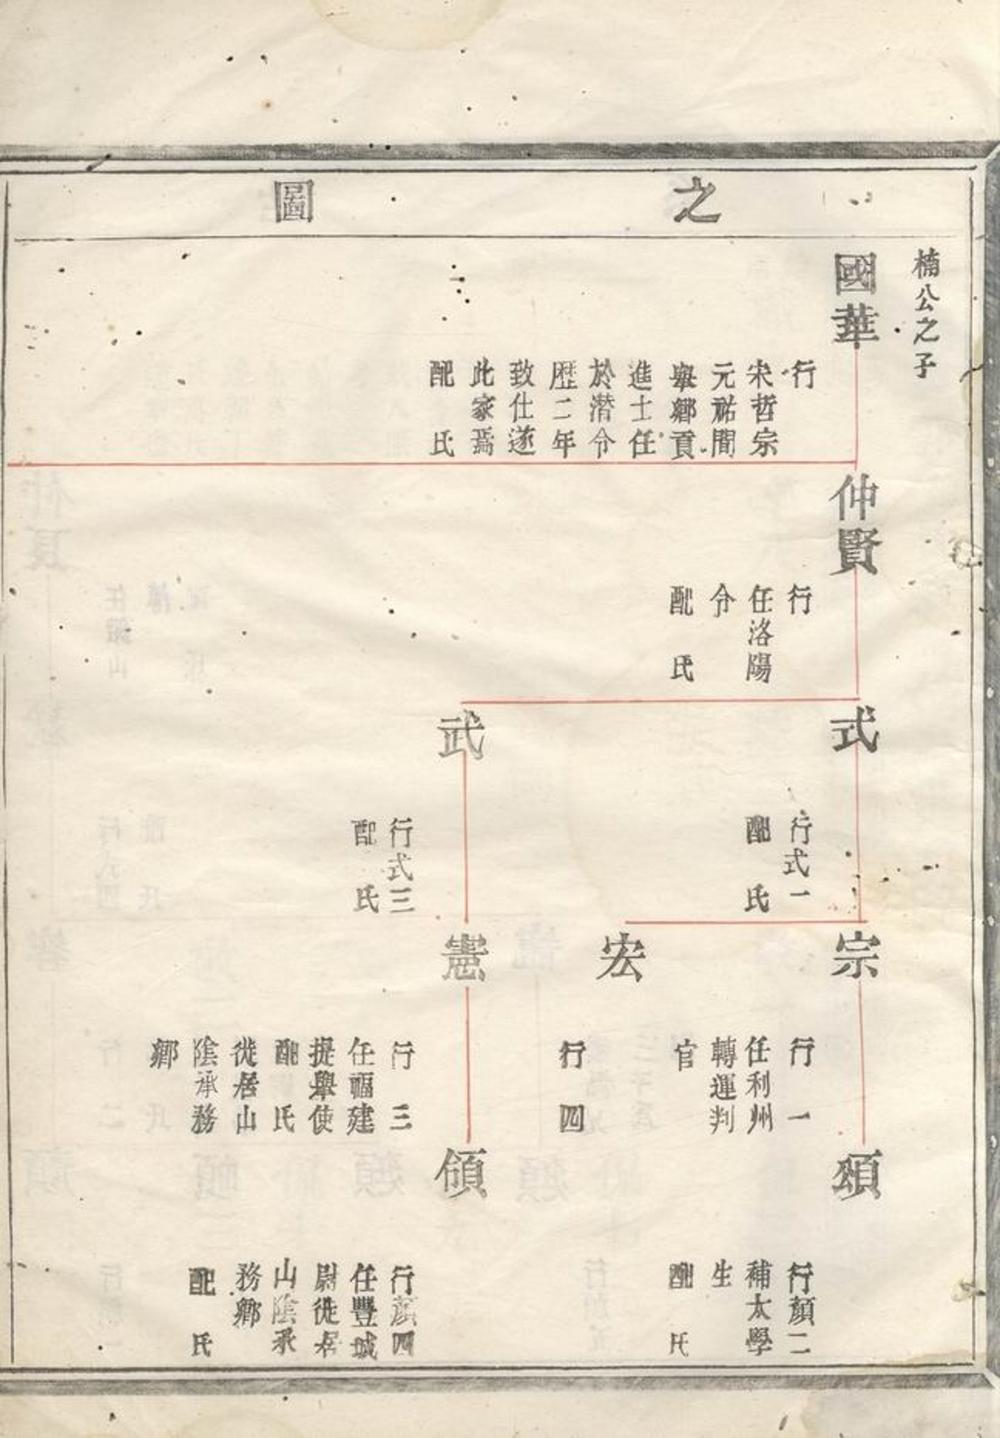 之圖
楠公之子
國華
行
宋哲宗
元祐間
舉鄉貢
進士任
於潛令
歷二年
致仕遂
此家焉
配氏
仲賢
行
任洛陽
令
配氏
式
行式一
配氏
武
行式三
配氏
宗
行一
任利州
轉運判
官
宏
行四
憲
行三
任福建
提舉使
配氏
徙居山
陰承務
鄉
頌
行顏二
補太學
生
配氏
頎
行顏四
任豐城
尉徙居
山陰承
務鄉
配氏